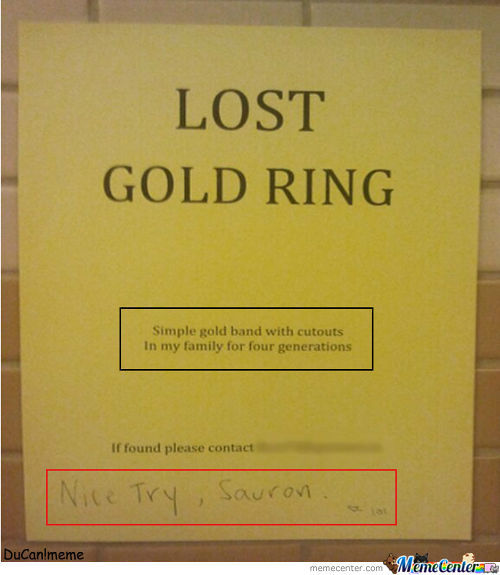 LOST
GOLD RING
Simple gold band with cutouts
In my family for four generations
If found please contact
Nice Try, Sauron.
lol
DuCan!meme
memecenter.com
MemeCenter